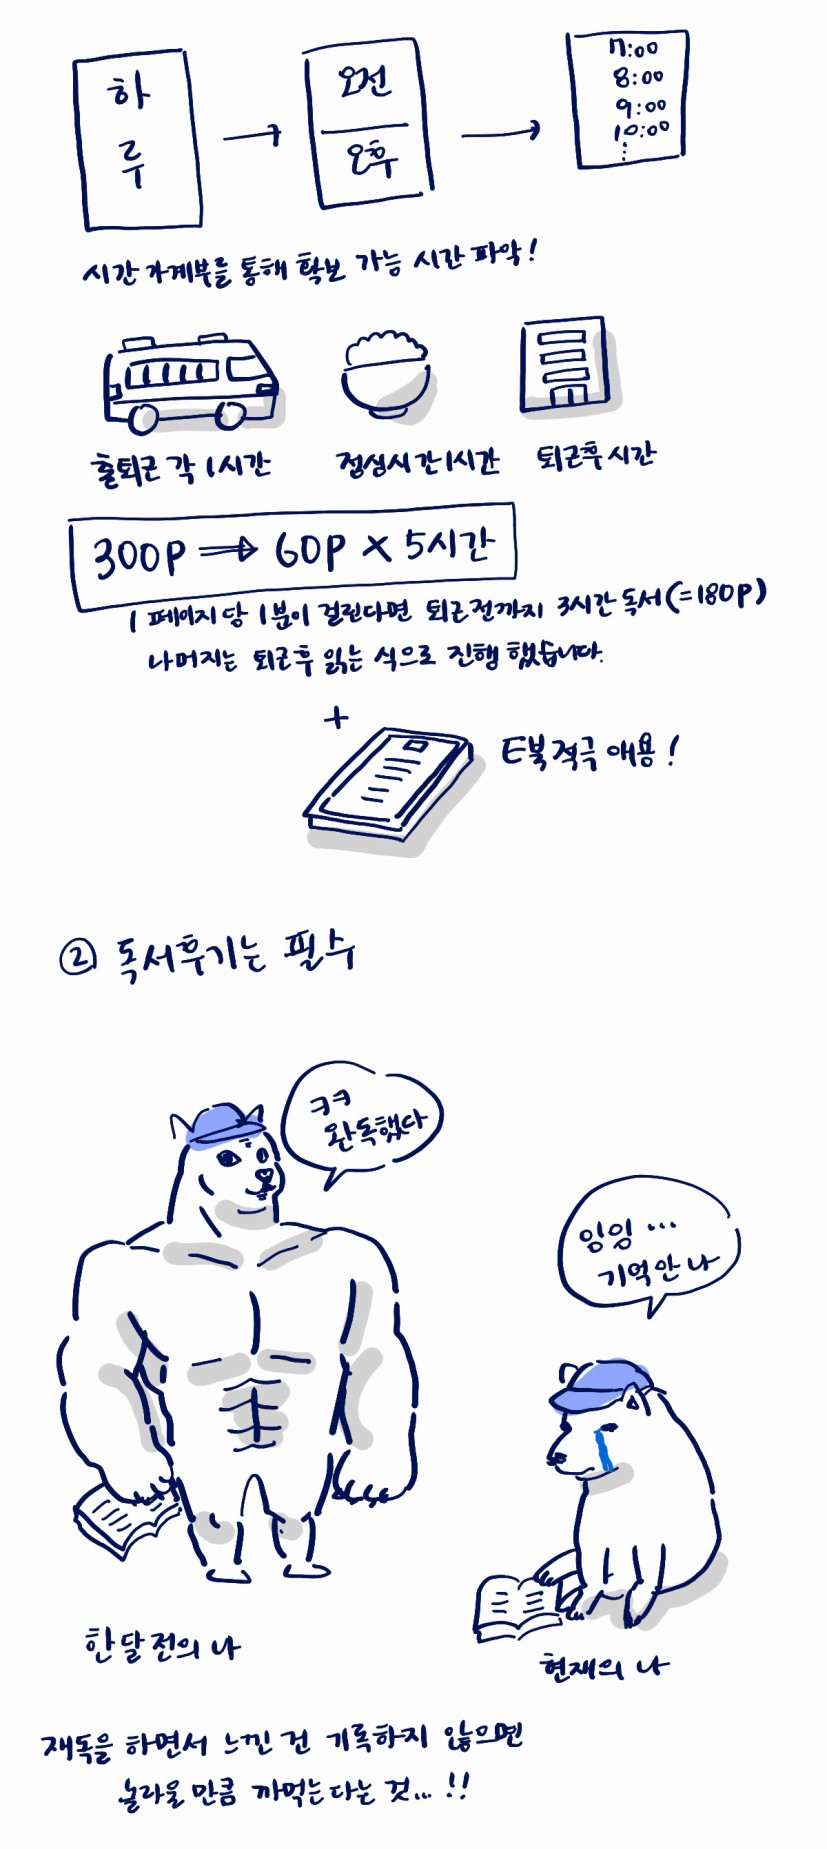 하
루
오전
오후
7:00
8:00
9:00
10:00
시간 가계부를 통해 확보 가능 시간 파악!
출퇴근 각 1시간
점심시간 1시간
퇴근후 시간
300P ⇒ 60P × 5시간
1 페이지 당 1분이 걸린다면 퇴근전까지 3시간 독서(=180P)
나머지는 퇴근후 읽는 식으로 진행 했습니다.
+
E북 적극 애용!
② 독서후기는 필수
ㅋㅋ
완독했다
잉잉...
기억안나
한달 전의 나
현재의 나
재독을 하면서 느낀 건 기록하지 않으면
놀라울 만큼 까먹는다는 것...!!